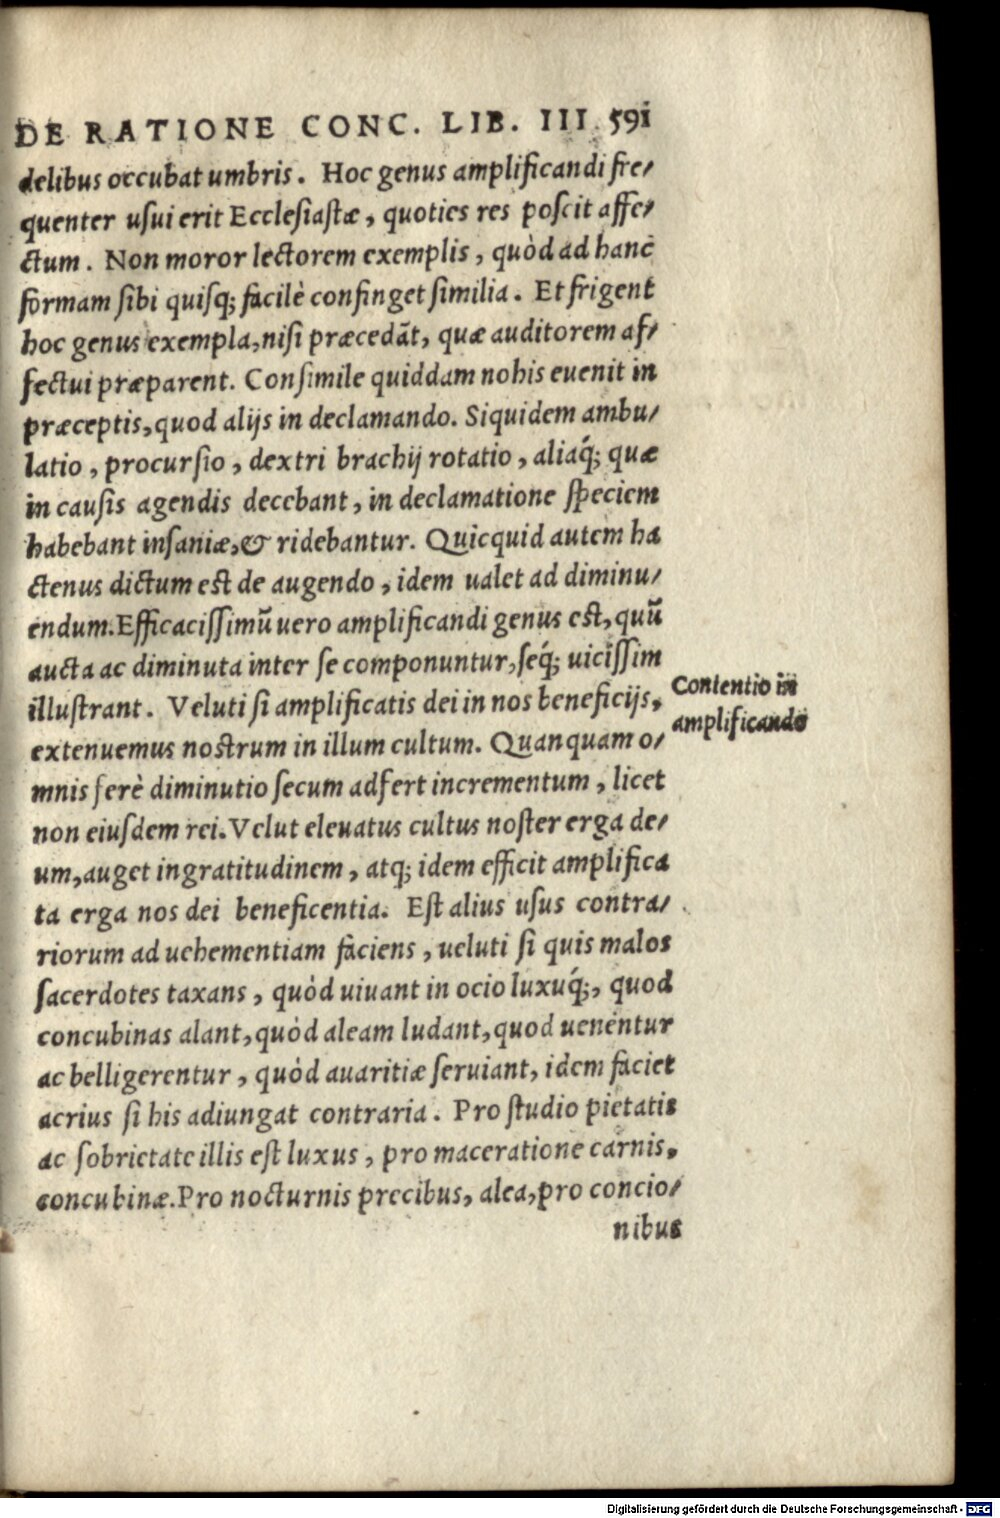 DE RATIONE CONC. LIB. III 591
delibus occubat umbris. Hoc genus amplificandi fre/
quenter usui erit Ecclesiastæ, quoties res poscit affe/
ctum. Non moror lectorem exemplis, quòd ad hanc
formam sibi quisq; facilè confinget similia. Et frigent
hoc genus exempla, nisi præcedāt, quæ auditorem af/
fectui præparent. Consimile quiddam nobis euenit in
præceptis, quod alijs in declamando. Siquidem ambu/
latio, procursio, dextri brachij rotatio, aliaq́; quæ
in causis agendis decebant, in declamatione speciem
habebant insaniæ, & ridebantur. Quicquid autem ha
ctenus dictum est de augendo, idem ualet ad diminu/
endum. Efficacissimū uero amplificandi genus est, quū
aucta ac diminuta inter se componuntur, seq́; uicissim
illustrant. Veluti si amplificatis dei in nos beneficijs,
Contentio in
amplificando
extenuemus nostrum in illum cultum. Quanquam o/
mnis ferè diminutio secum adfert incrementum, licet
non eiusdem rei. Velut eleuatus cultus noster erga de/
um, auget ingratitudinem, atq; idem efficit amplifica
ta erga nos dei beneficentia. Est alius usus contra/
riorum ad uehementiam faciens, ueluti si quis malos
sacerdotes taxans, quòd uiuant in ocio luxuq́;, quod
concubinas alant, quòd aleam ludant, quod uenentur
ac belligerentur, quòd auaritiæ seruiant, idem faciet
acrius si his adiungat contraria. Pro studio pietatis
ac sobrietate illis est luxus, pro maceratione carnis,
concubinæ. Pro nocturnis precibus, alea, pro concio/
nibus
Digitalisierung gefördert durch die Deutsche Forschungsgemeinschaft - DFG